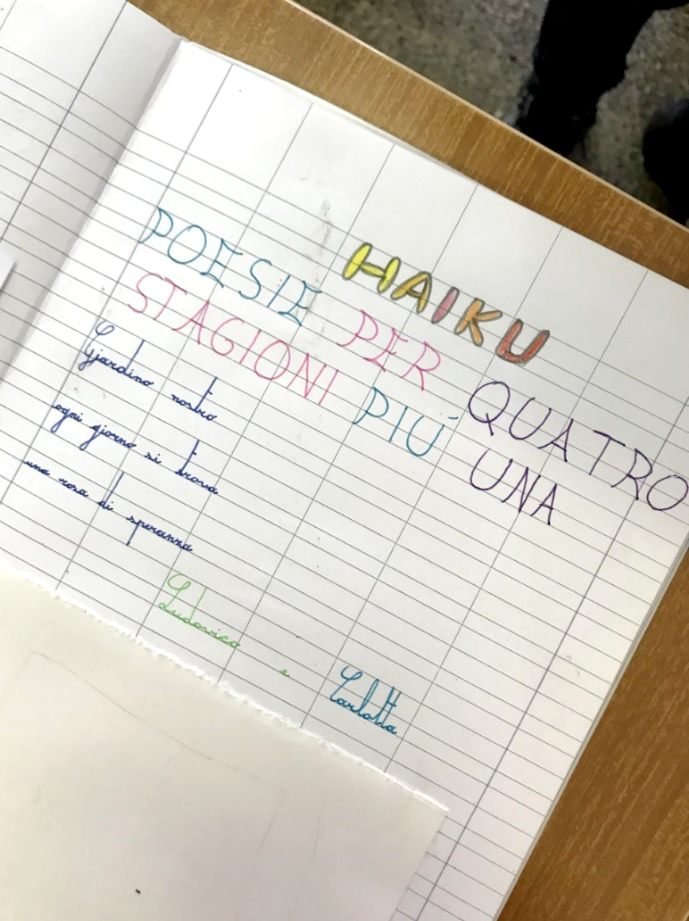 HAIKU
POESIE PER QUATRO
STAGIONI PIÚ UNA
Giardino nostro
ogni giorno si trova
una rosa di speranza
Ludovico e Carlotta